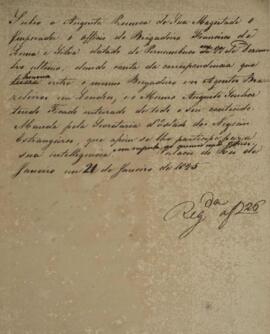 Subio a Augusta Presença de Sua Magestade o
Imperador o officio do Brigadeiro Francisco de
Lima e Silva datado de Pernambuco em 22 de Dezem
bro ultimo, dando conta da correspondencia que
houvera entre o mesmo Brigadeiro e os Agentes Bra
zileiros em Londres, e o Mesmo Augusto Senhor
tendo Ficado inteirado de todo o seu conteúdo
Manda pela Secretaria d'Estado dos Negocios
Estrangeiros, que assim se lhe participe para
sua intelligencia em resposta ao
Palacio do Rio de
Janeiro em 21 de Janeiro de 1825
Reg.da a f 226